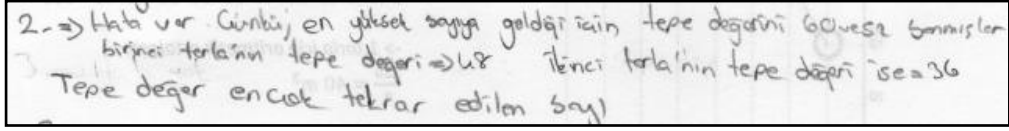 2-⇒ Hata var Çünkü, en yüksek sayıya geldiği için tepe değerini 60 ve 52 sanmışlar
birinci tarla'nın tepe değeri ⇒ 48 ikinci tarla'nın tepe değeri ise = 36
Tepe değer en çok tekrar edilen sayı